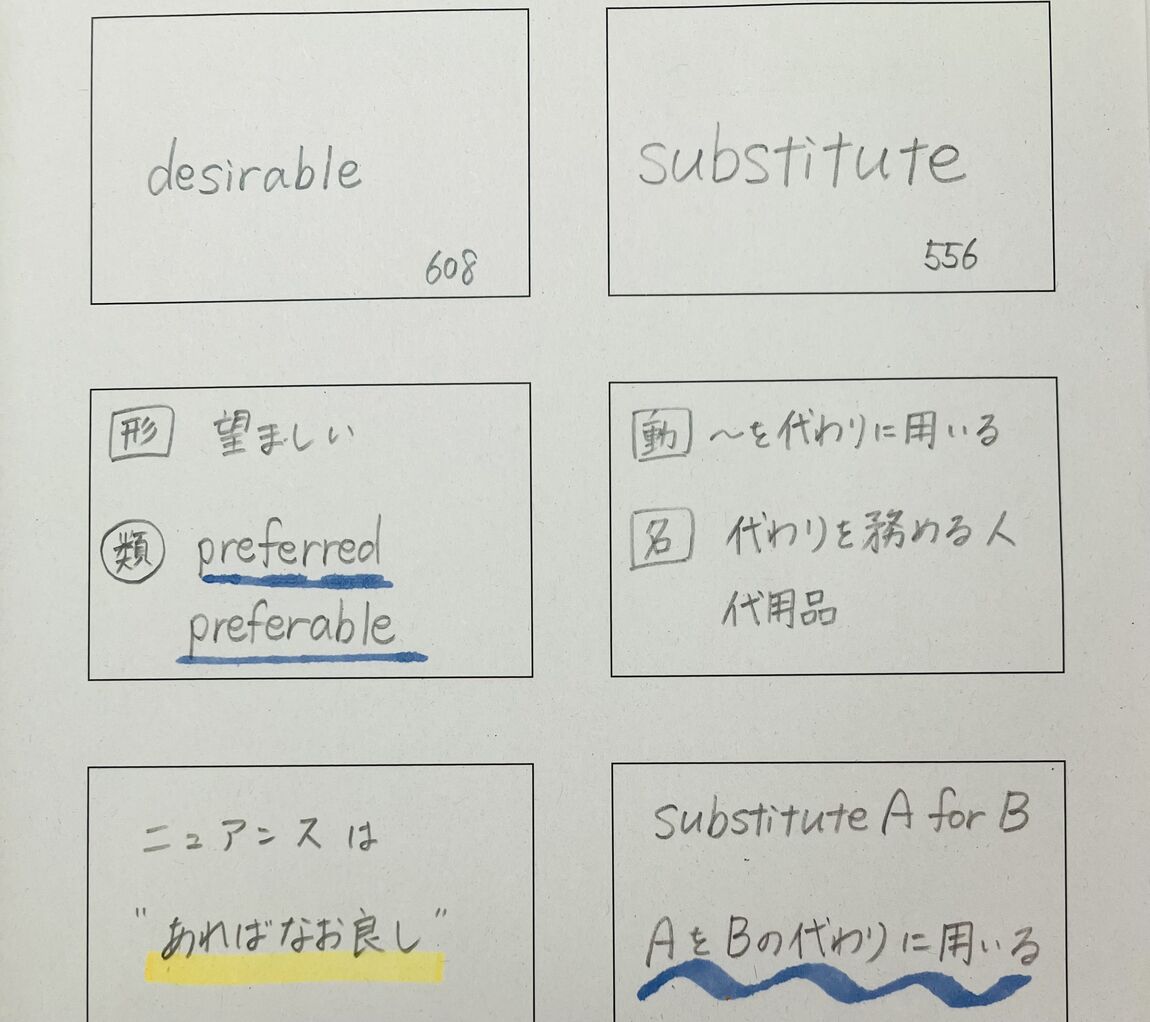 desirable
608
substitute
556
形 望ましい
類 preferred
preferable
動 ～を代わりに用いる
名 代わりを務める人
代用品
ニュアンスは
"あればなお良し"
substitute A for B
AをBの代わりに用いる